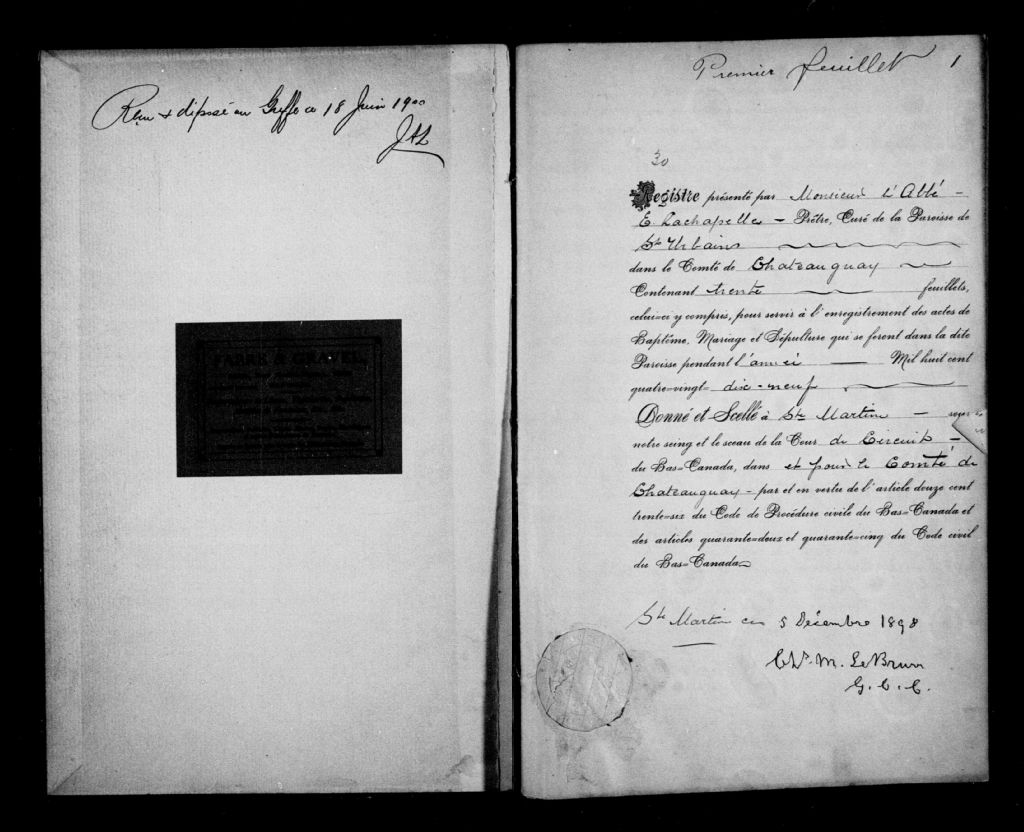 Reçu & déposé au Greffe ce 18 Juin 1900
JAL
FABRE & GRAVEL,
Premier feuillet 1
30
Registre présenté par Monsieur l'Abbé -
E Lachapelle - Prêtre, Curé de la Paroisse de
St Urbain
dans le Comté de Chateauguay
Contenant trente feuillets,
celui-ci y compris, pour servir à l'enregistrement des actes de
Baptême, Mariage et Sépulture qui se feront dans la dite
Paroisse pendant l'année Mil huit cent
quatre-vingt-dix-neuf
Donné et Scellé à Ste Martine - sous
notre seing et le sceau de la Cour de Circuit -
du Bas=Canada, dans et pour le Comté de
Chateauguay - par et en vertu de l'article douze cent
trente=six du Code de Procédure civile du Bas=Canada et
des articles quarante=deux et quarante=cinq du Code civil
du Bas=Canada
Ste Martine ce 5 Décembre 1898
Chs. M. LeBrun
G. C. C.